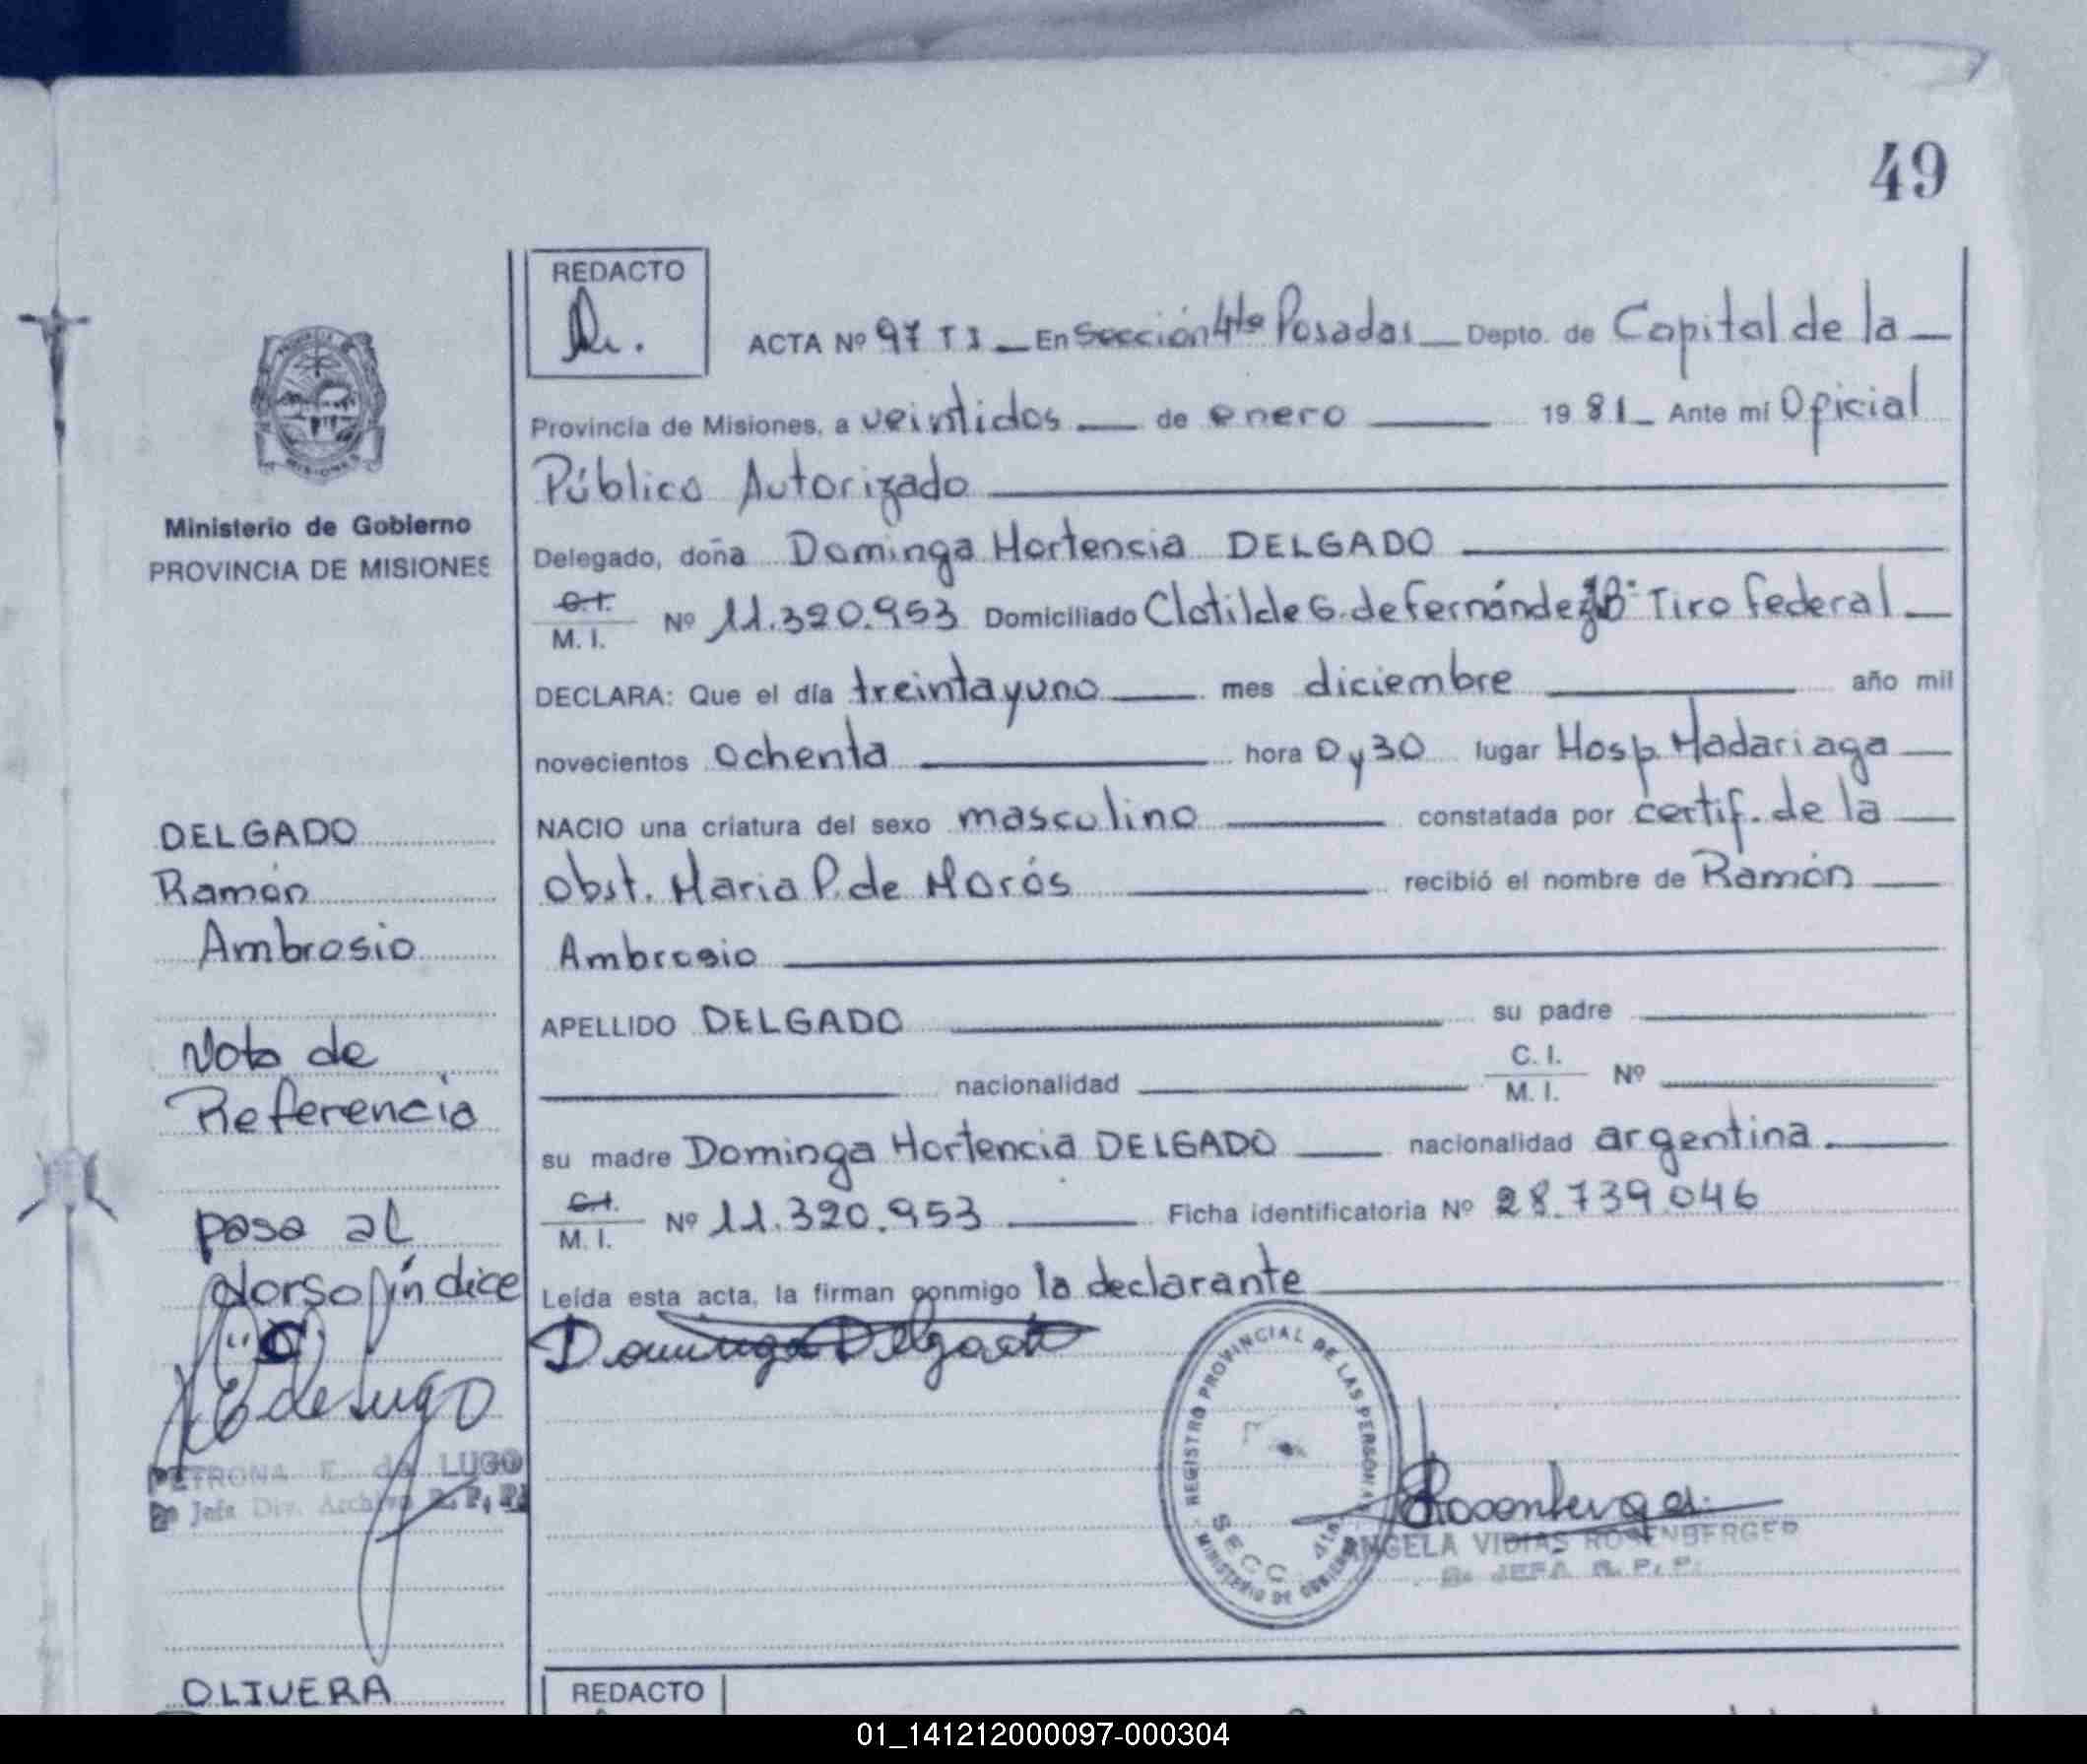 49
REDACTO
ACTA Nº 97 T I En Sección 4ta Posadas Depto. de Capital de la
Provincia de Misiones, a veintidos de enero 19 81 Ante mi Oficial
Público Autorizado
Delegado, doña Dominga Hortencia DELGADO
C.I.
M. I. Nº 11.320.953 Domiciliado Clotilde G. de Fernández Bº Tiro Federal
DECLARA: Que el día treinta y uno mes diciembre año mil
novecientos ochenta hora 0 y 30 lugar Hosp. Madariaga
NACIO una criatura del sexo masculino constatada por certif. de la
Obst. Maria P. de Morós recibió el nombre de Ramón
Ambrosio
APELLIDO DELGADO su padre
nacionalidad C. I.
M. I. Nº
su madre Dominga Hortencia DELGADO nacionalidad argentina.
C.I.
M. I. Nº 11.320.953 Ficha identificatoria Nº 28.739.046
Leída esta acta, la firman conmigo la declarante
Dominga Delgado
REGISTRO PROVINCIAL DE LAS PERSONAS
SECC. 4ta.
MINISTERIO DE GOBIERNO
Rosenberger
ANGELA VIDIAS ROSENBERGER
2a. JEFA R. P. P.
PROVINCIA DE
MISIONES
Ministerio de Gobierno
PROVINCIA DE MISIONES
DELGADO
Ramón
Ambrosio
Nota de
Referencia
pasa al
dorso índice
"C"
E de Lugo
PETRONA E. de LUGO
2a Jefa Div. Archivo R. P. P.
OLIVERA
REDACTO
01_141212000097-000304